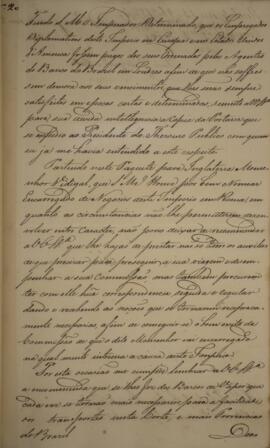 Tendo S. M. o Imperador Determinado, que os Empregados
Diplomaticos deste Imperio na Europa e nos Estados Unidos
d'America fossem pagos dos seus Ordenados pelos Agentes
do Banco do Brasil em Londres afim de que não soffres-
sem demora nos seus vencimentos, que lhes serão sempre
satisfeitos em épocas certas e determinadas, remetto a V. Sª
para sua devida intelligencia a Copia da Portaria que
se expedio ao Presidente do Thesouro Publico com quem
eu já me havia entendido a este respeito.
Partindo neste Paquete para Inglaterra o Monse-
nhor Vidigal, que S. M. I. Houve por bem Nomear
Encarregado de Negocios deste Imperio em Roma, em
quanto as circunstancias não lhe permittirem desen-
volver outro Caracter, não posso deixar de recommendar
a V. Sª que lhe haja de prestar todos os auxilios
de que precisar para proseguir a sua viagem e desem-
penhar a sua Commissão mas tambem procurar
ter com elle huma correspondencia seguida e regular
dando e recebendo as noções que se tornarem reciproca-
mente necessarias, afim de conseguir-se o bom exito da
Commissão de que o dito Monsenhor vai encarregado
na qual muito interessa a causa deste Imperio.
Por esta occasião me cumpre lembrar a V. Sª
a encommenda que se lhe fez dos Barcos de Vapor que
cada vez se tornão mais necessarios para a facilidade
dos transportes nesta Corte, e mais Provincias
do Brasil
Deos